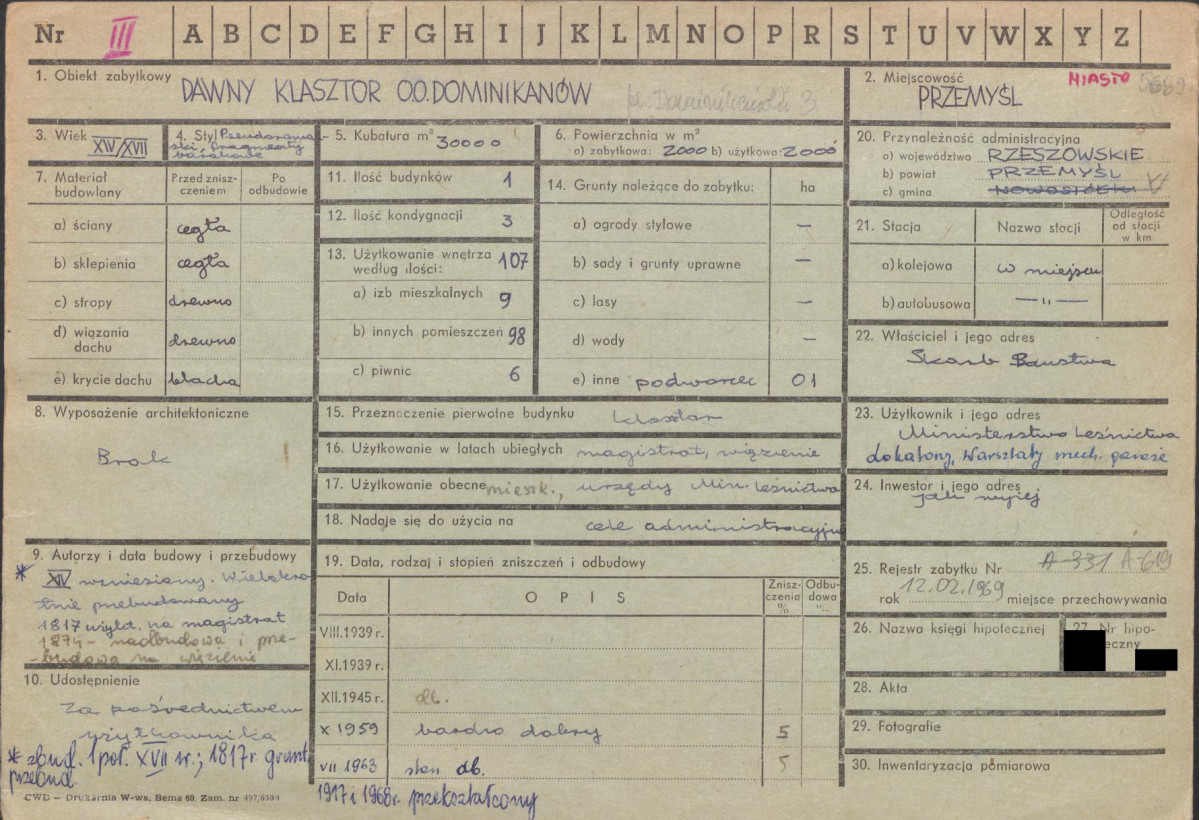 Nr III A B C D E F G H I J K L M N O P R S T U V W X Y Z
1. Obiekt zabytkowy
DAWNY KLASZTOR O.O. DOMINIKANÓW pl. Dominikański 3
2. Miejscowość MIASTO 5689
PRZEMYŚL
3. Wiek XIV/XVII
4. Styl Pseudoroma-
ński, fragmenty
barokowe
5. Kubatura m³ 30000
6. Powierzchnia w m²
a) zabytkowa: 2000 b) użytkowa: 2000
20. Przynależność administracyjna
a) województwo RZESZOWSKIE
b) powiat PRZEMYŚL
c) gmina
7. Materiał
budowlany
Przed znisz-
czeniem
Po
odbudowie
a) ściany cegła
b) sklepienia cegła
c) stropy drewno
d) wiązania
dachu drewno
e) krycie dachu blacha
11. Ilość budynków 1
12. Ilość kondygnacji 3
13. Użytkowanie wnętrza
według ilości: 107
a) izb mieszkalnych 9
b) innych pomieszczeń 98
c) piwnic 6
14. Grunty należące do zabytku: ha
a) ogrody stylowe —
b) sady i grunty uprawne —
c) lasy —
d) wody —
e) inne podworzec 01
21. Stacja Nazwa stacji
Odległość
od stacji
w km
a) kolejowa w miejscu
b) autobusowa —„—
22. Właściciel i jego adres
Skarb Państwa
8. Wyposażenie architektoniczne
Brak
15. Przeznaczenie pierwotne budynku klasztor
16. Użytkowanie w latach ubiegłych magistrat, więzienie
17. Użytkowanie obecne mieszk., urzędy Min. Leśnictwa
18. Nadaje się do użycia na cele administracyjne
23. Użytkownik i jego adres
Ministerstwo Leśnictwa
lokatorzy, Warsztaty mech. garaże
24. Inwestor i jego adres
jak wyżej
9. Autorzy i data budowy i przebudowy
* XIV wzniesiony. Wielokro-
tnie przebudowany
1817 wykł. na magistrat
1874 - nadbudowa i prze-
-budowa na więzienie
10. Udostępnienie
Za pośrednictwem
użytkownika
* zbud. 1 poł. XVII w.; 1817 r. grunt.
przebud.
19. Data, rodzaj i stopień zniszczeń i odbudowy
Data OPIS
Znisz-
czenia
%
Odbu-
dowa
%
VIII.1939 r.
XI.1939 r.
XII.1945 r. db.
X 1959 bardzo dobry 5
VII 1963 stan db. 5
1917 i 1968r. przekształcony
25. Rejestr zabytku Nr A-331 A-619
rok 12.02.1969 miejsce przechowywania
26. Nazwa księgi hipotecznej
27. Nr hipo-
teczny
28. Akta
29. Fotografie
30. Inwentaryzacja pomiarowa
CWD — Drukarnia W-wa, Bema 60. Zam. nr 497/6500